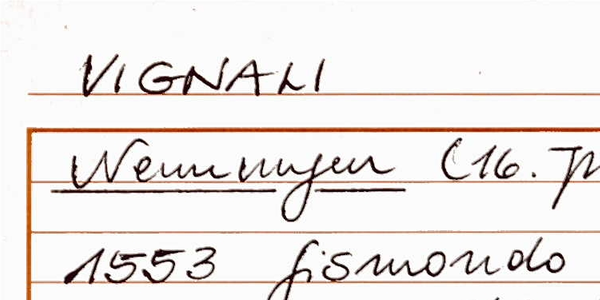 VIGNALI
Nennungen (16. Jh
1553 Gismondo